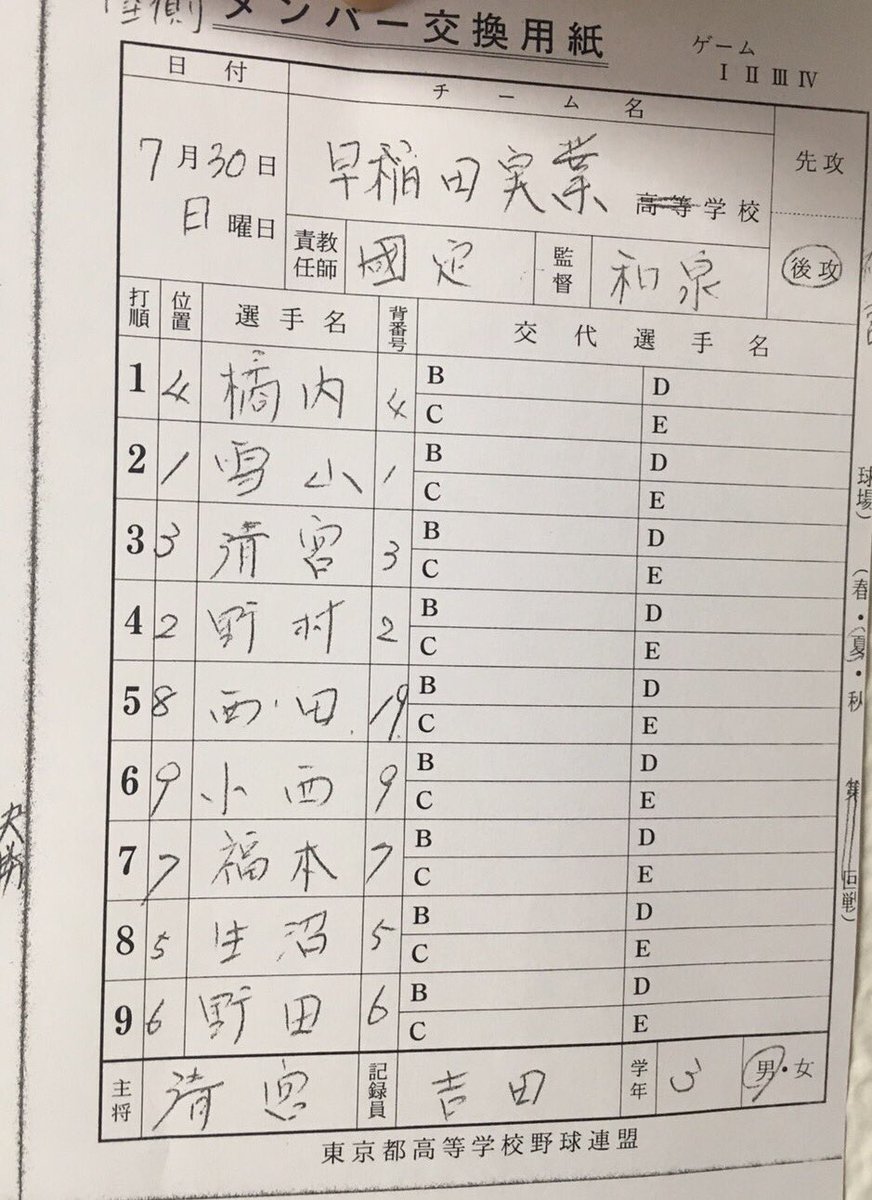 塁側 メンバー交換用紙
ゲーム
I II III IV
日付 チーム名
7月30日
日曜日
早稲田実業 高等学校
先攻
後攻
責任教師 國定 監督 和泉
打順 位置 選手名 背番号 交代選手名
1 4 橘内 4 B D
C E
2 1 雪山 1 B D
C E
3 3 清宮 3 B D
C E
4 2 野村 2 B D
C E
5 8 西田 19 B D
C E
6 9 小西 9 B D
C E
7 7 福本 7 B D
C E
8 5 生沼 5 B D
C E
9 6 野田 6 B D
C E
主将 清宮 記録員 吉田 学年 3 男・女
東京都高等学校野球連盟
球場)
(春・(夏)・秋
第 回戦)
決勝